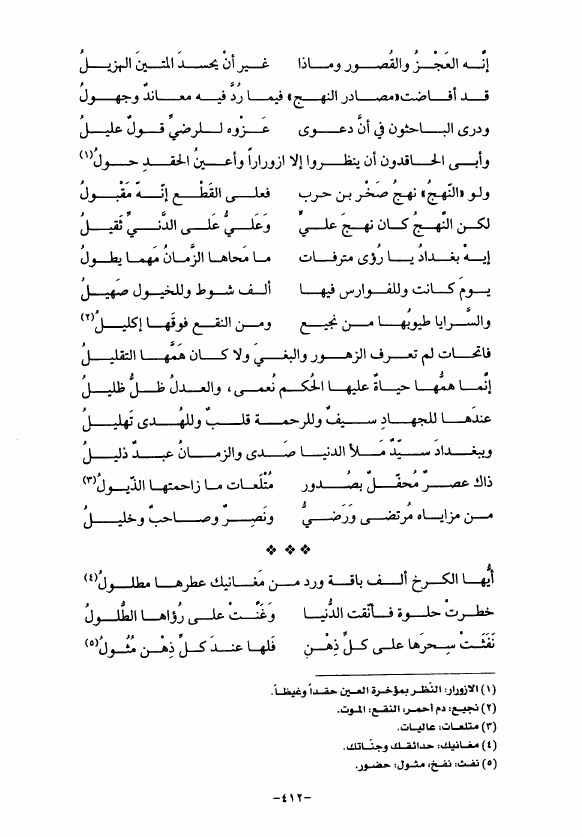 إنَّه العَجْزُ والقُصور وماذا غير أنْ يحسدَ المتينَ الهزيلُ
قد أفاضت «مصادر النهج» فيما رُدَّ فيه معاندٌ وجهولُ
ودرى الباحثون في أنَّ دعوى عَزْوه للرضيِّ قولٌ عليلُ
وأبى الحاقدون أن ينظروا إلا ازوراراً وأعينُ الحقد حولُ(١)
ولو «النَّهجُ» نهجُ صَخْر بن حرب فعلى القَطْع إنَّه مَقْبولُ
لكن النَّهجُ كان نهجَ عليٍّ وَعَليٌّ عَلى الدَّنيِّ ثَقيلُ
إيهْ بغدادُ يا رُؤى مترفات ما مَحاها الزَّمانُ مَهما يطولُ
يومَ كانت وللفوارس فيها ألف شوط وللخيول صَهيلُ
والسَّرايا طيوبُها من نجيع ومن النقع فوقَها إكليلُ(٢)
فاتحات لم تعرف الزهور والبغيَ ولا كان هَمَّها التقليلُ
إنَّما همُّها حياةٌ عليها الحُكم نُعمى، والعدلُ ظلٌّ ظليلُ
عندَها للجهادِ سيفٌ وللرحمة قلبٌ وللهُدى تَهليلُ
وببغدادَ سيّدٌ مَلأ الدنيا صَدى والزمانُ عبدٌ ذليلُ
ذاك عصرٌ مُحفَّلٌ بصُدور مُتْلَعات ما زاحمتها الذّيولُ(٣)
من مزاياه مُرتضى وَرَضيُّ ونَصيرٌ وصاحبٌ وخليلُ
❖ ❖ ❖
أيُّها الكرخ ألف باقة ورد من مَغانيك عطرها مطلولُ(٤)
خطرتْ حلوة فأنَّقت الدُّنيا وَغَنَّتْ على رُؤاها الطُّلولُ
نَفَثَتْ سِحرَها على كلِّ ذِهْنٍ فلها عندَ كلِّ ذِهْن مُثُولُ(٥)
(١) الازورار: النَّظر بمؤخرة العين حقداً وغيظاً.
(٢) نجيع: دم أحمر، النقع: الموت.
(٣) متلعات: عاليات.
(٤) مغانيك: حدائقك وجنّاتك.
(٥) نفث: نفخ، مثول: حضور.
-٤١٢-